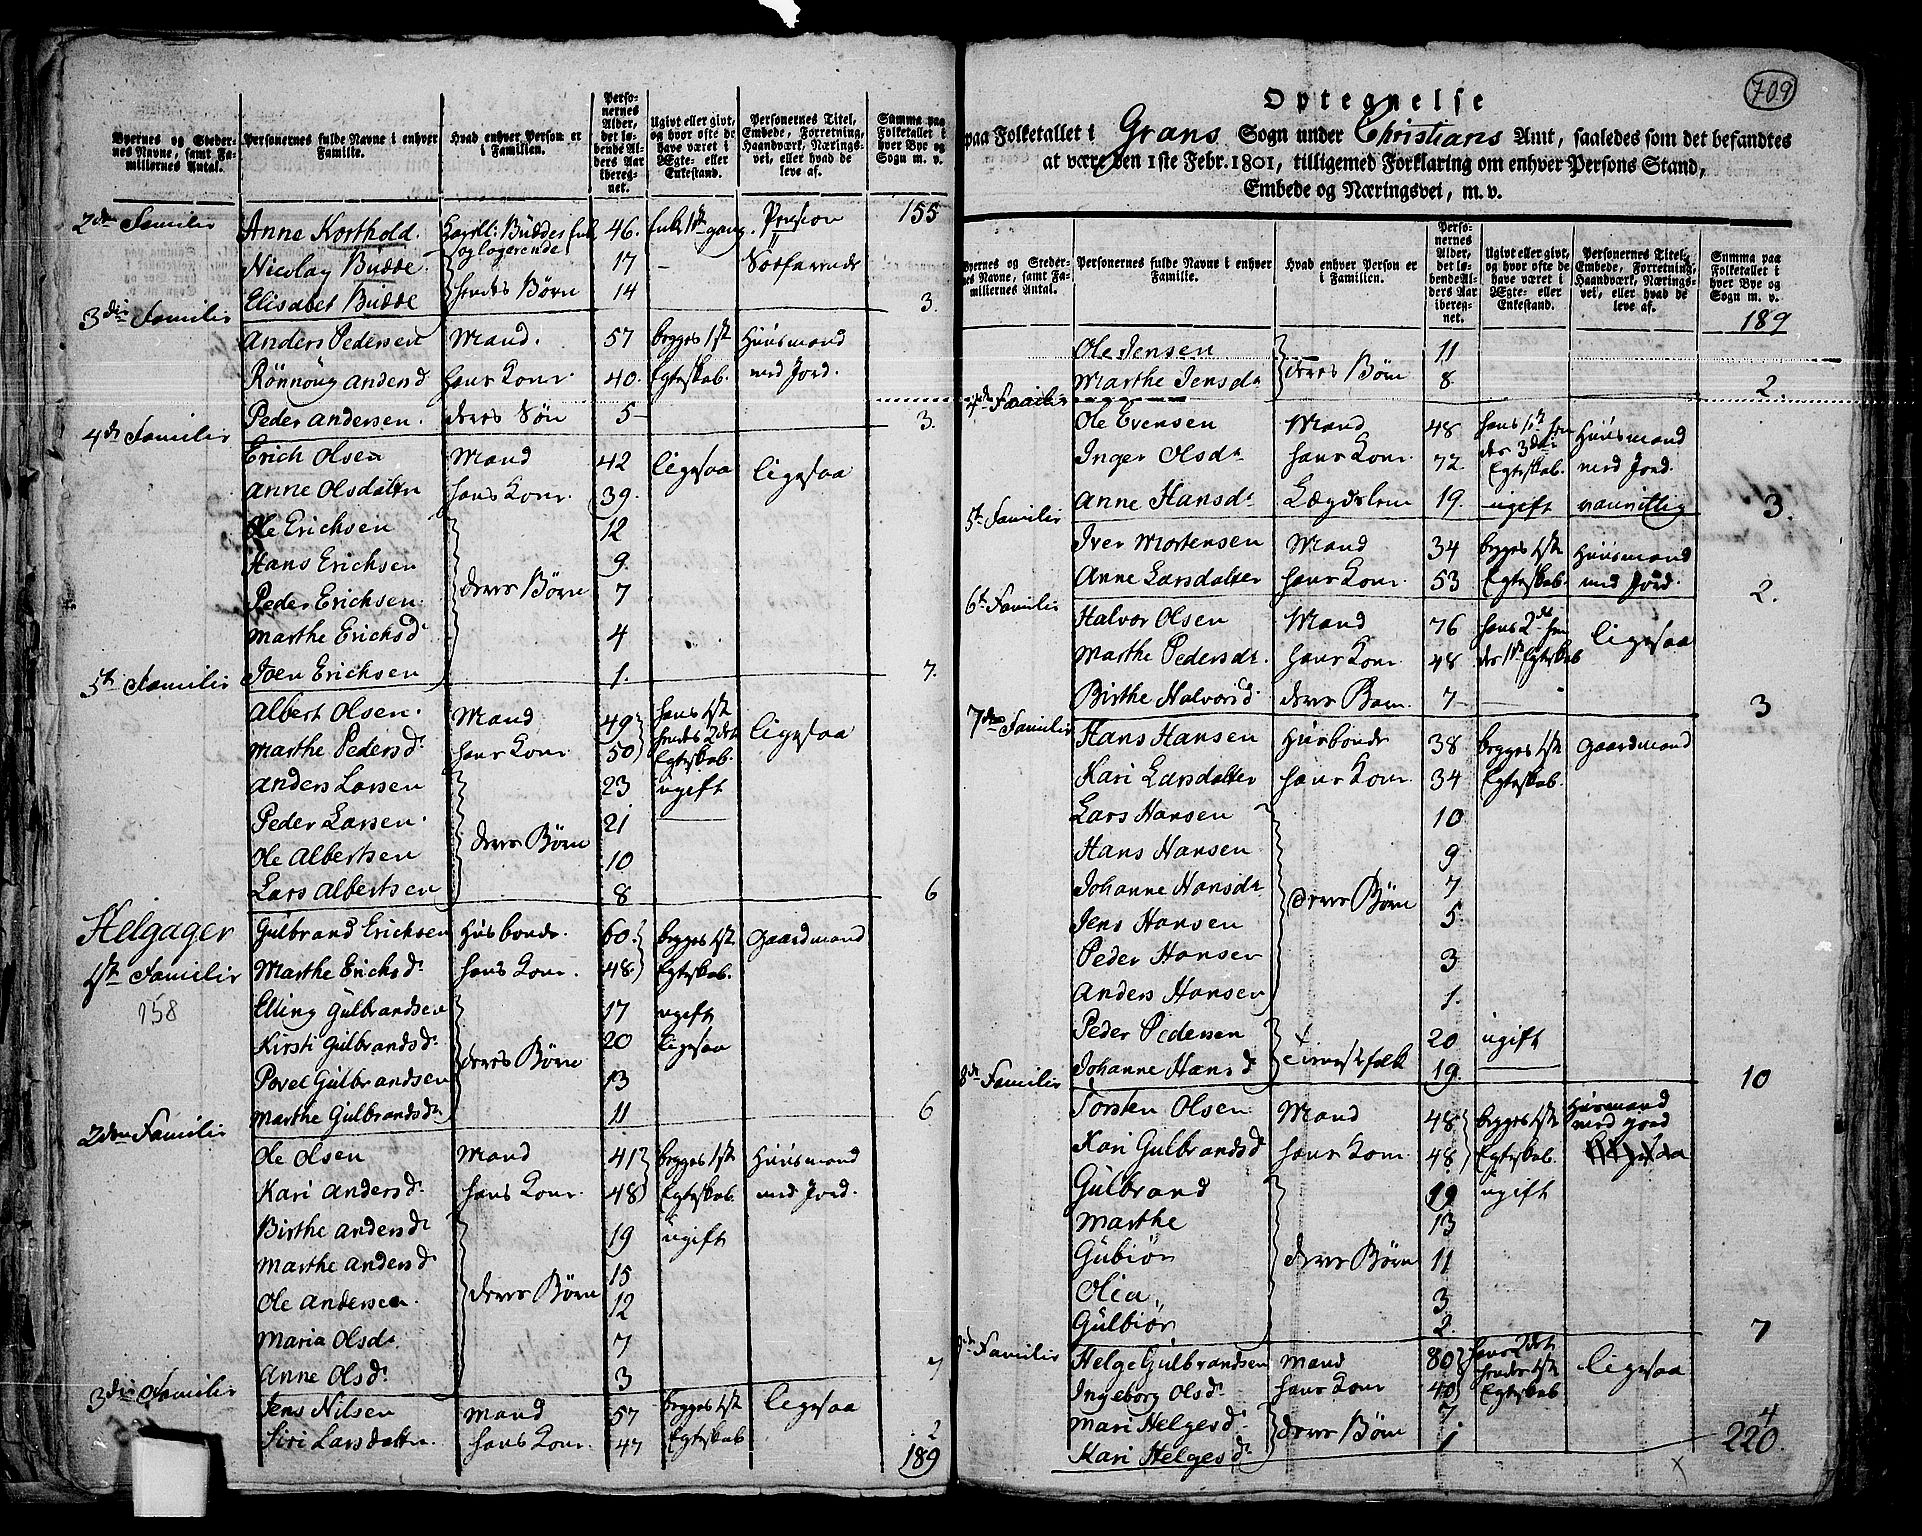 Byernes og Steder-
nes Navne, samt Fa-
miliernes Antal.
Personernes fulde Navne i enhver
Familie.
Hvad enhver Person er
i Familien.
Perso-
nernes
Alder,
det lø-
bende Al-
ders Aar
ibereg-
net.
Ugivt eller givt,
og hvor ofte de
have været i
Ægte- eller
Enkestand.
Personernes Titel,
Embede, Forretning,
Haandværk, Nærings-
vei, eller hvad de
leve af.
Summa paa
Folketallet i
hver Bye og
Sogn m. v.
155
2den Familie Anne Korthold 46. Enke 1ste gang. Pension
og logerende
Nicolay Budde 17 – Søefarende
Elisabet Budde hendes Børn 14 3.
3die Familie
Anders Pedersen Mand. 57 begges 1ste Huusmand
Rönnoug Andersd hans Kone. 40. Egteskab. med Jord.
Peder Andersen. deres Søn 5 3.
4de Familie
Erich Olsen Mand 42 ligesaa ligesaa
Anne Olsdatter hans Kone. 39.
Ole Erichsen 12
Hans Erichsen 9.
Peder Erichsen deres Børn 7
Marthe Erichsd 4
Joen Erichsen 1. 7.
5te Familie
Albert Olsen. Mand 49 hans 1ste ligesaa
Marthe Pedersd. hans Kone 50 hendes 2det
Egteskab.
Anders Larsen 23 ugift
Peder Larsen. 21
Ole Albertsen deres Børn 10
Lars Albertsen 8 6
Helgager
1ste Familie
158
Gulbrand Erichsen Husbonde. 60. begges 1ste Gaardmand
Marthe Erichsd. hans Kone. 48 Egteskab.
Elling Gulbrandsen 17 ugift
Kirsti Gulbrandsd. 20 ligesaa
Povel Gulbrandsen deres Børn 13
Marthe Gulbrandsd. 11 6
2den Familie
Ole Olsen Mand 41 begges 1ste Huusmand
Kari Andersd. hans Kone. 48 Egteskab. med Jord.
Birthe Andersd. 19 ugift
Marthe Andersd. 15
Ole Andersen deres Børn 12
Maria Olsd. 7
Anne Olsd. 3 7
3die Familie
Jens Nilsen Mand 57 begges 1ste ligesaa
Siri Larsdatter hans Kone. 47 Egteskab 2
189
709
Optegnelse
paa Folketallet i Grans Sogn under Christians Amt, saaledes som det befandtes
at være den 1ste Febr. 1801, tilligemed Forklaring om enhver Persons Stand,
Embede og Næringsvei, m. v.
Byernes og Steder-
nes Navne, samt Fa-
miliernes Antal.
Personernes fulde Navne i enhver
Familie.
Hvad enhver Person er
i Familien.
Perso-
nernes
Alder,
det lø-
bende Al-
ders Aar
ibereg-
net.
Ugivt eller givt,
og hvor ofte de
have været i
Ægte- eller
Enkestand.
Personernes Titel,
Embede, Forretning,
Haandværk, Nærings-
vei, eller hvad de
leve af.
Summa paa
Folketallet i
hver Bye og
Sogn m. v.
189
Ole Jensen 11
Marthe Jensd. deres Børn 8 2.
4de Familie
Ole Evensen Mand 48 hans 1ste hen Huusmand
Inger Olsd. hans Kone. 72 des 3die Egteskab. med Jord.
Anne Hansd. Lægdslem 19. ugift vanvittig 3.
5te Familie
Iver Mortensen Mand 34 begges 1ste Huusmand
Anne Larsdatter hans Kone. 53 Egteskab. med Jord. 2.
6te Familie
Halvor Olsen Mand 76 hans 2det hen ligesaa
Marthe Pedersd. hans Kone. 48 des 1ste Egteskab
Birthe Halvorsd. deres Barn 7 3
7de Familie
Hans Hansen Husbonde 38 begges 1ste Gaardmand
Kari Larsdatter hans Kone. 34 Egteskab.
Lars Hansen 10
Hans Hansen 9
Johanne Hansd. 7
Jens Hansen deres Børn 5
Peder Hansen 3
Anders Hansen 1.
Peder Pedersen 20 ugift
Johanne Hansd tienestfolk 19. 10
8de Familie
Torsten Olsen Mand 48 begges 1ste Husmand
med jord
Kari Gulbrandsd hans Kone. 48 Egteskab.
Gulbrand 19 ugift
Marthe 13
Gubiør deres Børn 11
Olia 3
Gulbiør 2. 7
9de Familie
Helge Gulbrandsen Mand 80 hans 2det ligesaa
Ingeborg Olsd. hans Kone 40 hendes 1ste
Egteskab
Mari Helgesd. 7
Kari Helgesd. deres Børn 1 4
220.